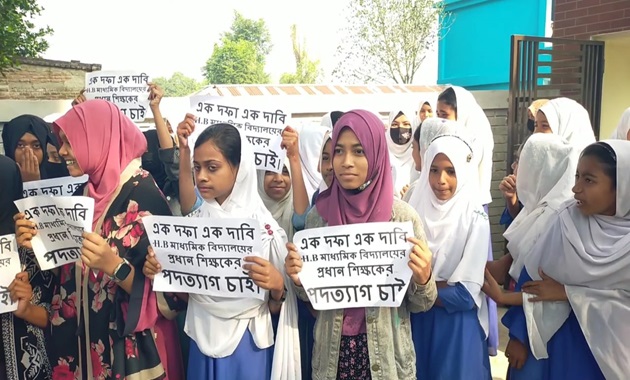 এক দফা এক দাবি
H.B মাধ্যমিক বিদ্যালয়ের
প্রধান শিক্ষকের
পদত্যাগ চাই
এক দফা এক দাবি
H.B মাধ্যমিক বিদ্যালয়ের
চাই
এক দফা এক দাবি
H.B মাধ্যমিক বিদ্যালয়ের
প্রধান
এক দফা এক দাবি
H.B মাধ্যমিক বিদ্যালয়ের
প্রধান শিক্ষকের
পদত্যাগ চাই
এক দফা এক দাবি
H.B মাধ্যমিক বিদ্যালয়ের
প্রধান শিক্ষকের
পদত্যাগ চাই